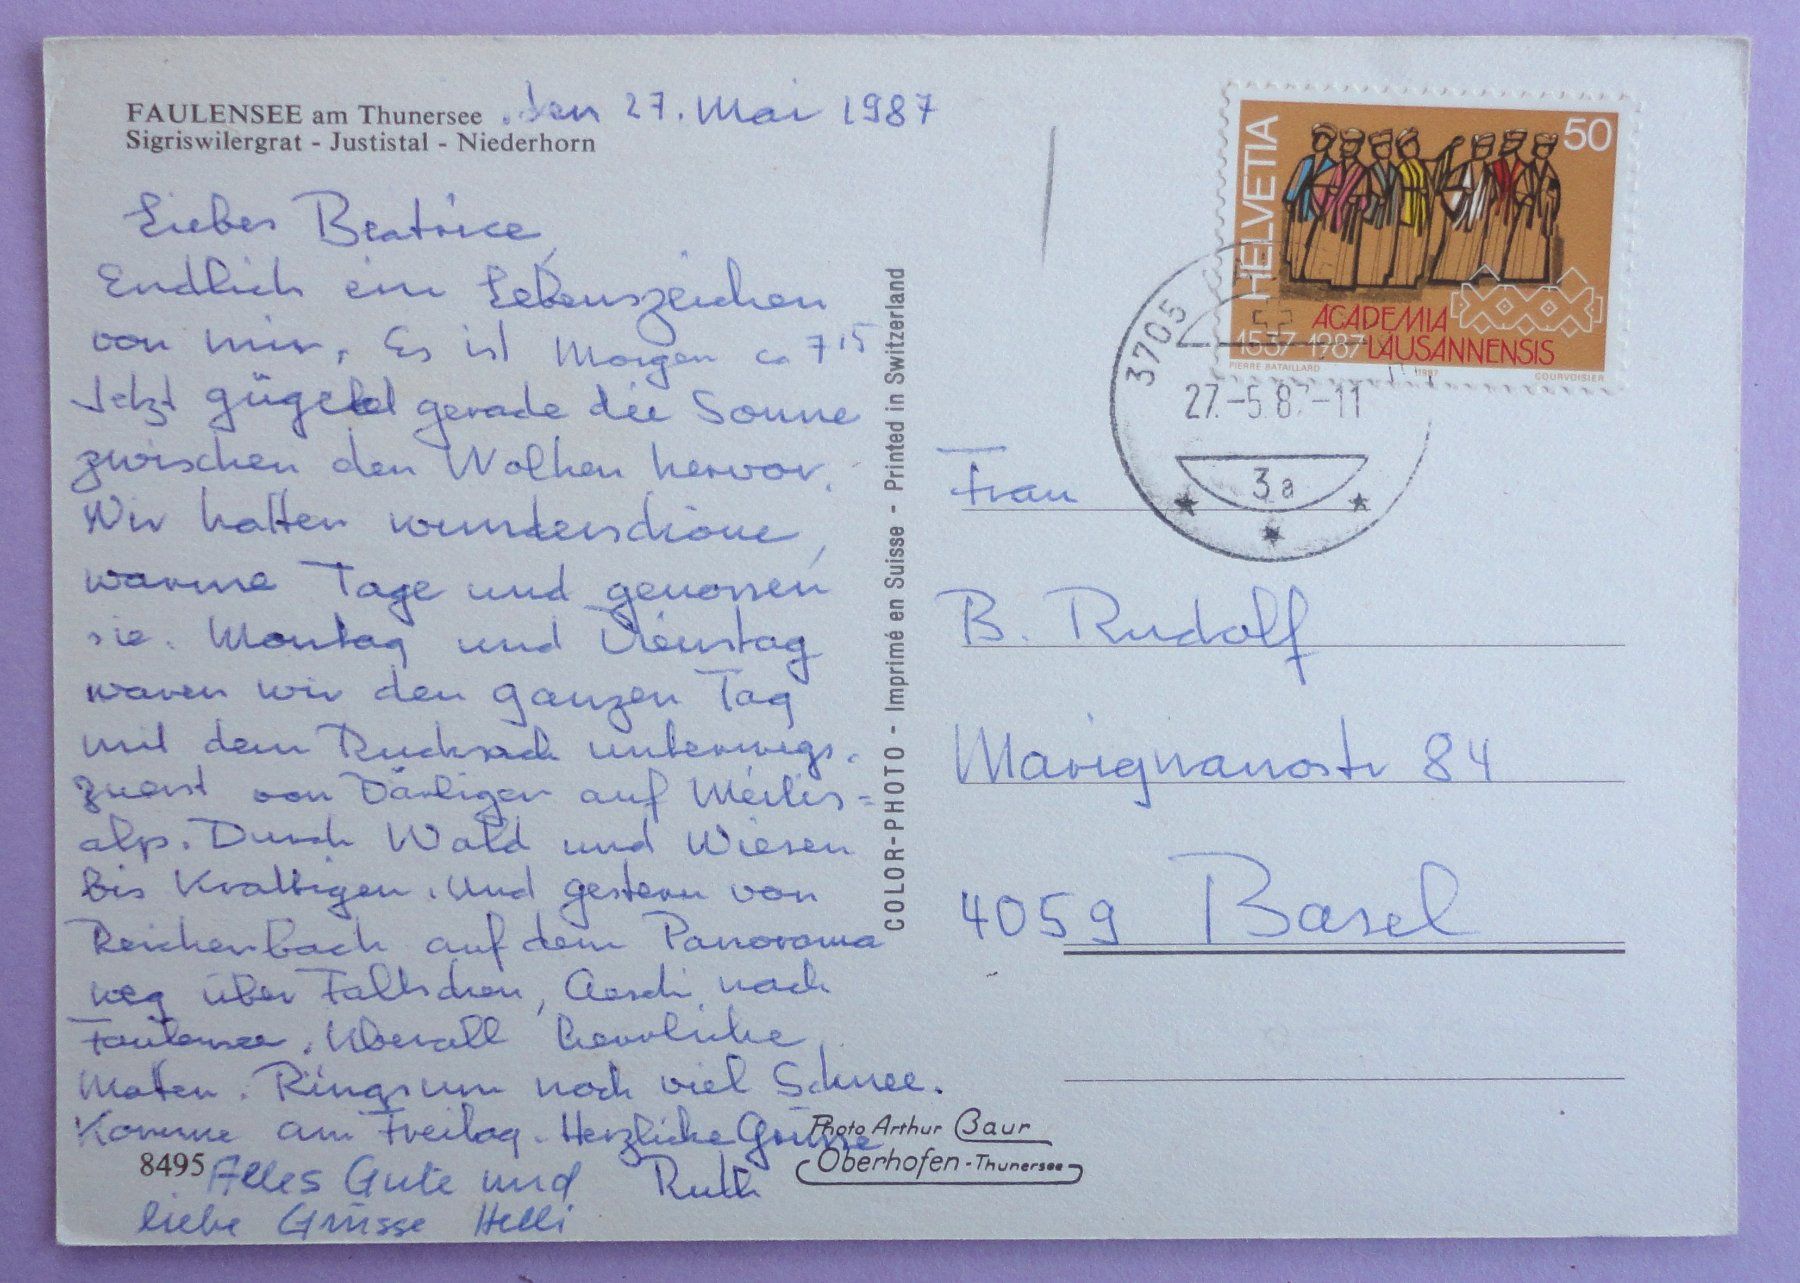 FAULENSEE am Thunersee, den 27. Mai 1987
Sigriswilergrat - Justistal - Niederhorn
Liebes Beatrice,
Endlich ein Lebenszeichen
von mir. Es ist Morgen ca 7 15
Jetzt gügeled gerade die Sonne
zwischen den Wolken hervor.
Wir hatten wunderschöne,
warme Tage und genossen
sie. Montag und Dienstag
waren wir den ganzen Tag
mit dem Rucksack unterwegs.
Zuerst von Därligen auf Meilis=
alp. Durch Wald und Wiesen
bis Krattigen. Und gestern von
Reichenbach auf dem Panorama
weg über Faltschen, Aeschi nach
Faulensee. Überall herrliche
Matten. Ringsum noch viel Schnee.
Komme am Freitag. Herzliche Grüsse
Ruth
8495 Alles Gute und
liebe Grüsse Helli
COLOR-PHOTO - Imprimé en Suisse - Printed in Switzerland
Photo Arthur Baur
Oberhofen - Thunersee
HELVETIA
50
ACADEMIA
1537 1987 LAUSANNENSIS
PIERRE BATAILLARD 1987 COURVOISIER
3705
27.-5.87-11
3a
Frau
B. Rudolf
Marignanostr 84
4059 Basel